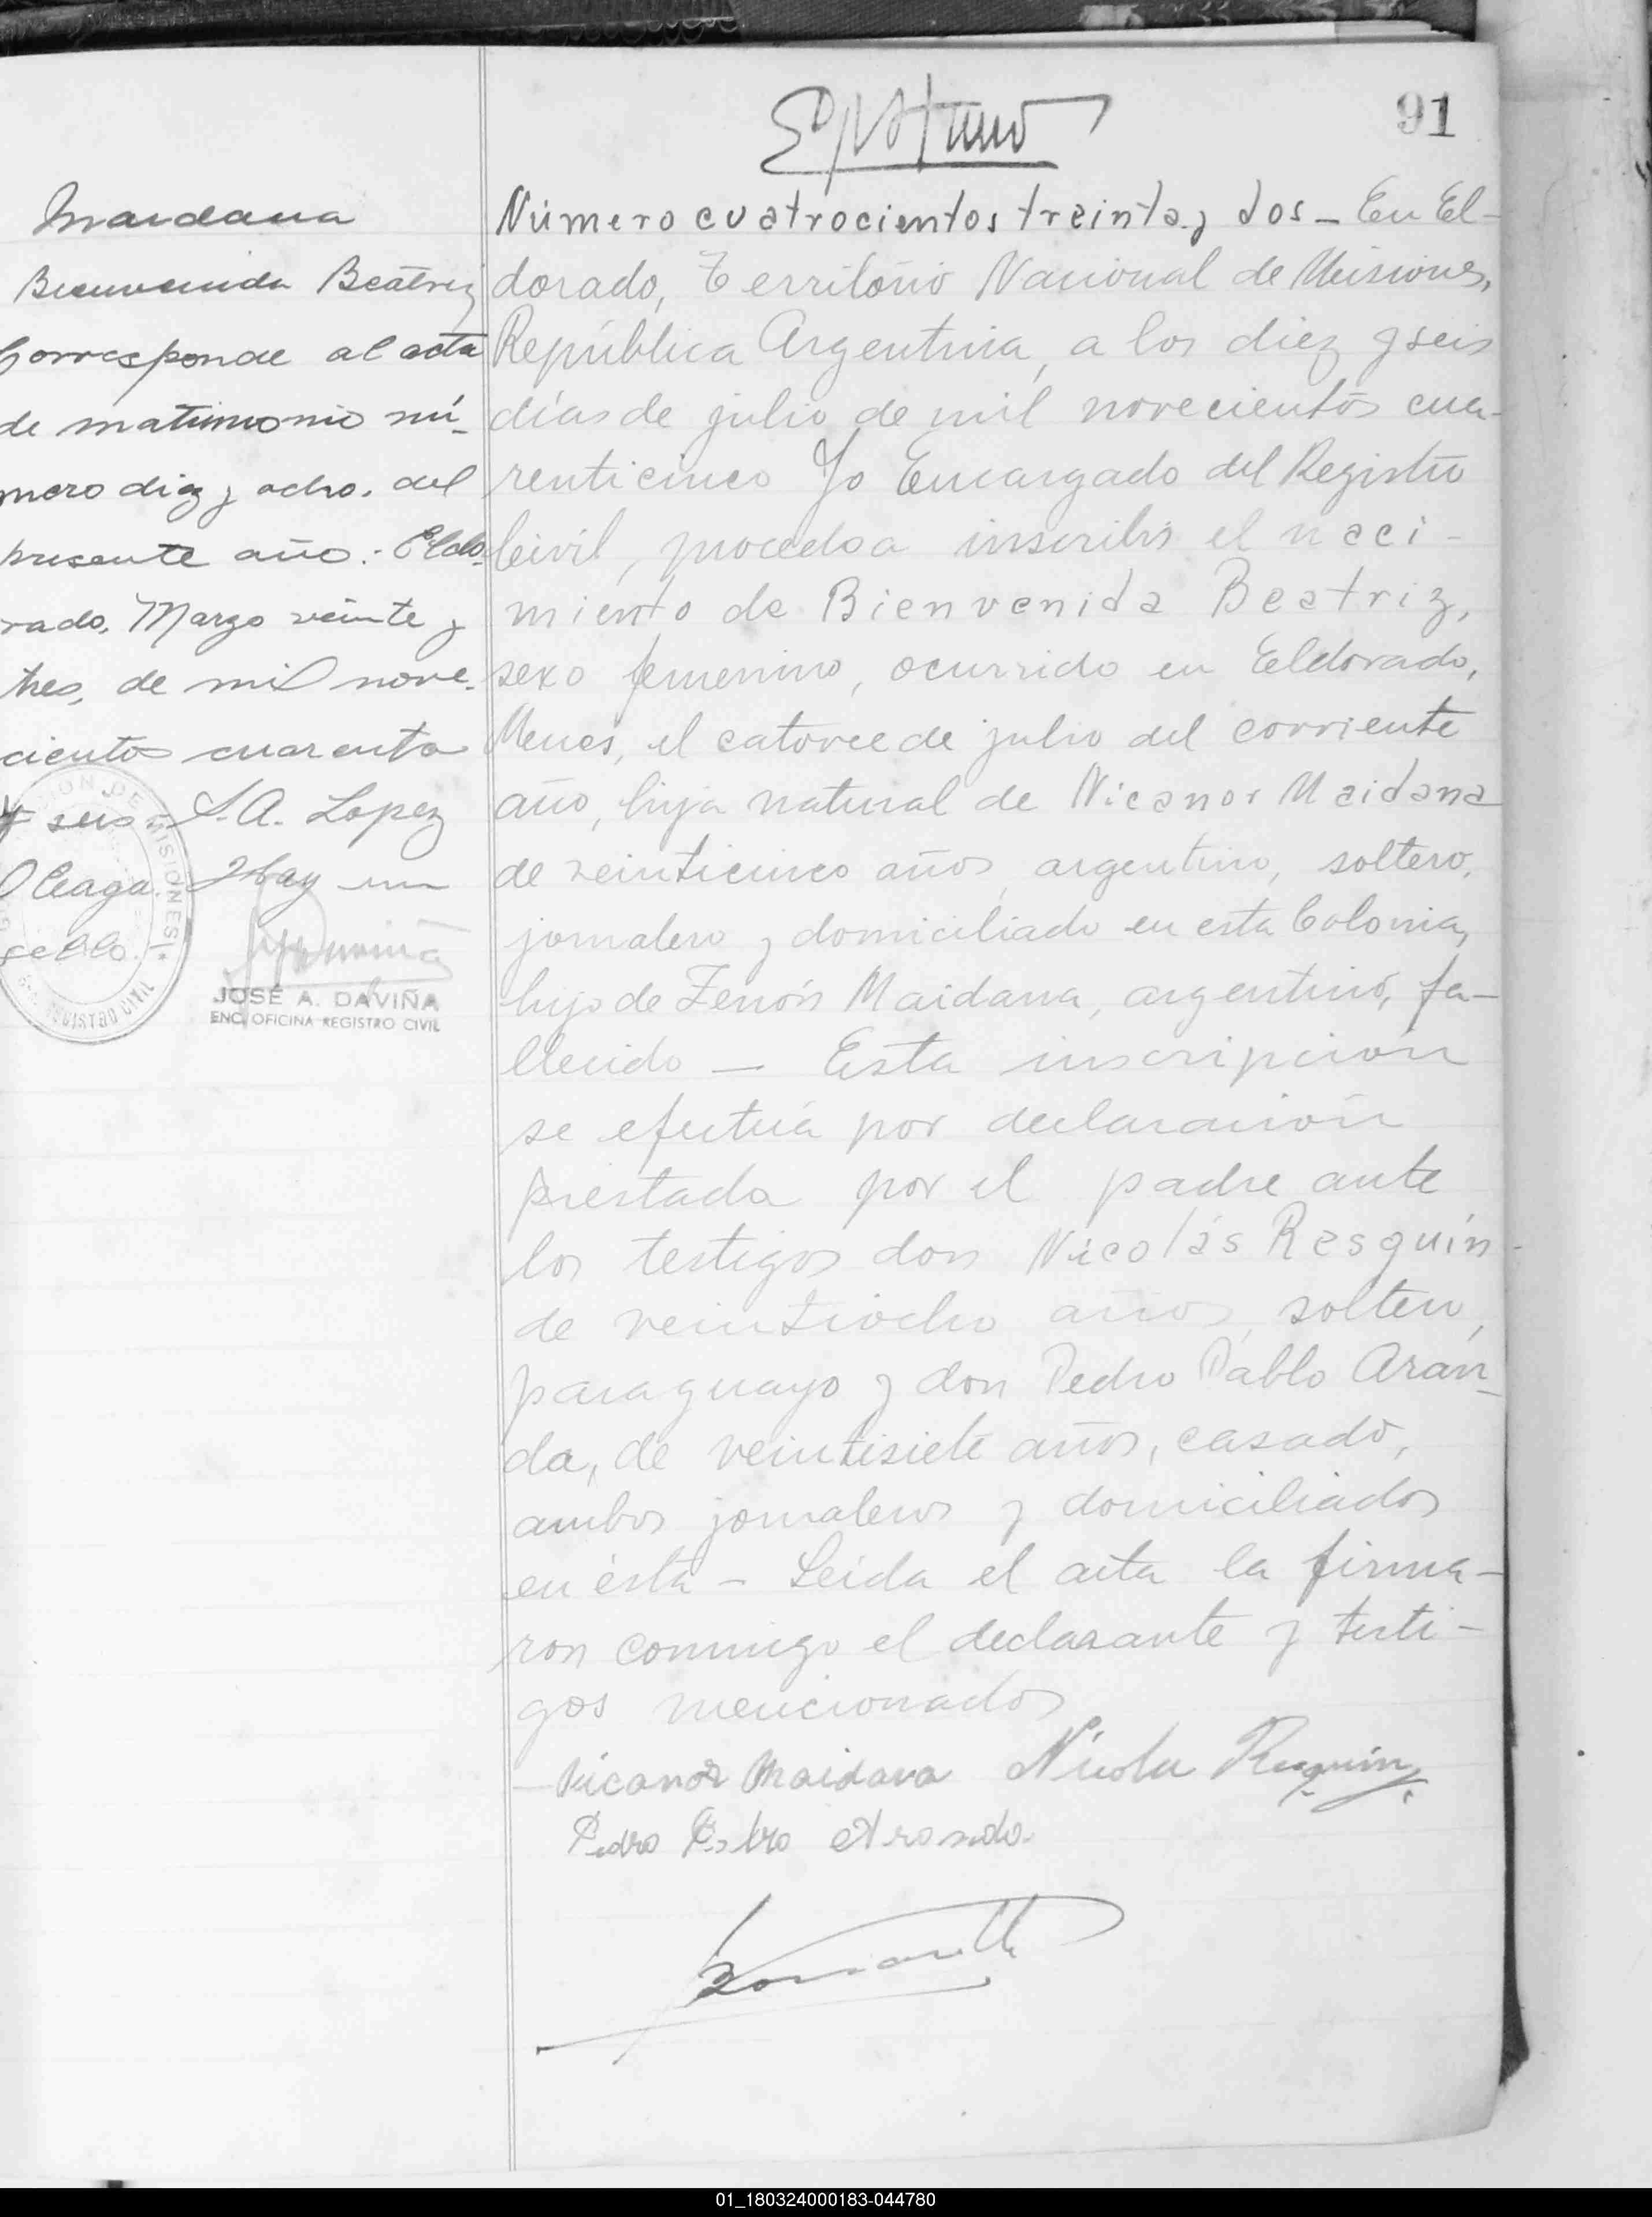 91
Maidana
Bienvenida Beatriz
Corresponde al acta
de matrimonio nú-
mero diez y ocho. del
presente año: Eldo-
rado, Marzo veinte y
tres, de mil nove-
cientos cuarenta
y seis. S.A. Lopez
Oleaga. Hay un
sello.
JOSÉ A. DAVIÑA
ENC. OFICINA REGISTRO CIVIL
DE MISIONES
REGISTRO CIVIL
Número cuatrocientos treinta y dos - En El-
dorado, Territorio Nacional de Misiones,
República Argentina, a los diez y seis
días de julio de mil novecientos cua-
renticinco Yo Encargado del Registro
Civil, procedo a inscribir el naci-
miento de Bienvenida Beatriz,
sexo femenino, ocurrido en Eldorado,
Mnes, el catorce de julio del corriente
año, hija natural de Nicanor Maidana
de veinticinco años, argentino, soltero,
jornalero y domiciliado en esta Colonia,
hijo de Zenón Maidana, argentino, fa-
llecido - Esta inscripción
se efectúa por declaración
prestada por el padre ante
los testigos don Nicolás Resquín
de veintiocho años, soltero,
paraguayo y don Pedro Pablo Aran-
da, de veintisiete años, casado,
ambos jornaleros y domiciliados
en ésta - Leida el acta la firma-
ron conmigo el declarante y testi-
gos mencionados
Nicanor Maidana Nicolas Resquin
Pedro Pablo Aranda
01_180324000183-044780